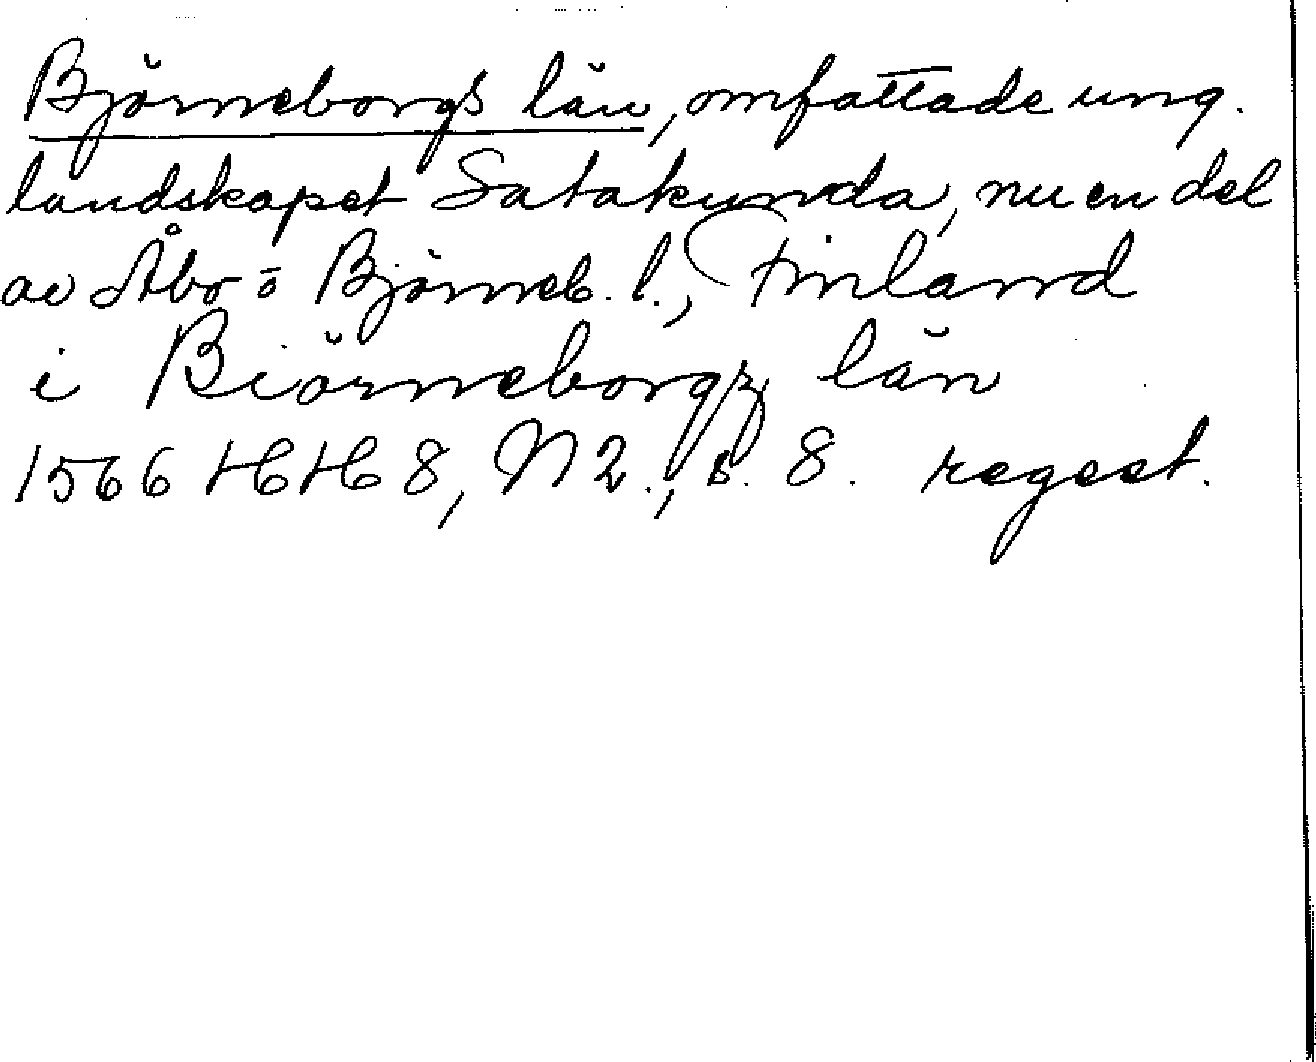 Björneborgs län, omfattade ung.
landskapet Satakunda, nu en del
av Åbo o Björneb. l., Finland
i Biörneborgz län
1566 HH 8, N 2., s. 8. regest.